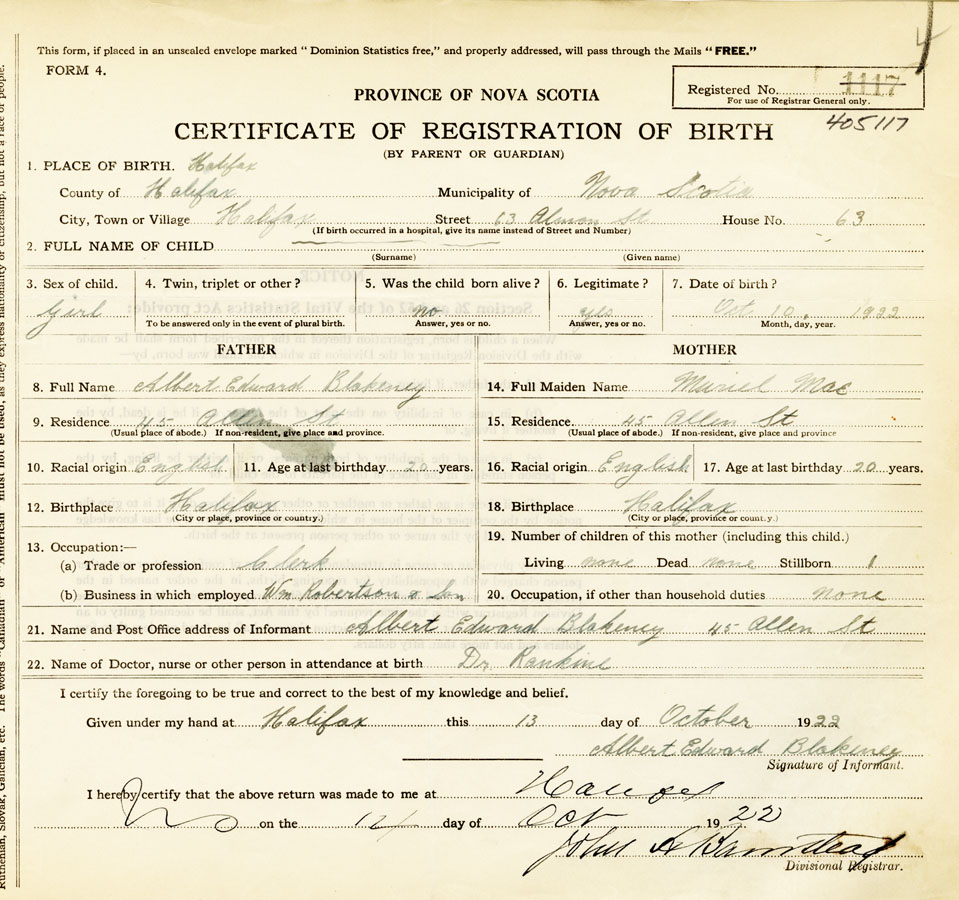 This form, if placed in an unsealed envelope marked “Dominion Statistics free,” and properly addressed, will pass through the Mails “FREE.”
FORM 4.
Registered No. 1117
For use of Registrar General only.
PROVINCE OF NOVA SCOTIA
405117
CERTIFICATE OF REGISTRATION OF BIRTH
(BY PARENT OR GUARDIAN)
1. PLACE OF BIRTH. Halifax
County of Halifax Municipality of Nova Scotia
City, Town or Village Halifax Street 63 Almon St House No. 63
(If birth occurred in a hospital, give its name instead of Street and Number)
2. FULL NAME OF CHILD
(Surname) (Given name)
3. Sex of child. 4. Twin, triplet or other? 5. Was the child born alive? 6. Legitimate? 7. Date of birth?
girl no yes Oct 10, 1922
To be answered only in the event of plural birth. Answer, yes or no. Answer, yes or no. Month, day, year.
FATHER MOTHER
8. Full Name Albert Edward Blakeney 14. Full Maiden Name Muriel Mac
9. Residence 45 Allen St 15. Residence 45 Allen St
(Usual place of abode.) If non-resident, give place and province. (Usual place of abode.) If non-resident, give place and province
10. Racial origin English 11. Age at last birthday 20 years. 16. Racial origin English 17. Age at last birthday 20 years.
12. Birthplace Halifax 18. Birthplace Halifax
(City or place, province or country.) (City or place, province or coun.y.)
19. Number of children of this mother (including this child.)
13. Occupation:—
(a) Trade or profession Clerk Living none Dead none Stillborn 1
(b) Business in which employed Wm Robertson & Son 20. Occupation, if other than household duties None
21. Name and Post Office address of Informant Albert Edward Blakeney 45 Allen St
22. Name of Doctor, nurse or other person in attendance at birth Dr. Rankine
I certify the foregoing to be true and correct to the best of my knowledge and belief.
Given under my hand at Halifax this 13 day of October 1922
Albert Edward Blakeney
Signature of Informant.
I hereby certify that the above return was made to me at
on the day of Oct 1922
John A
Divisional Registrar.